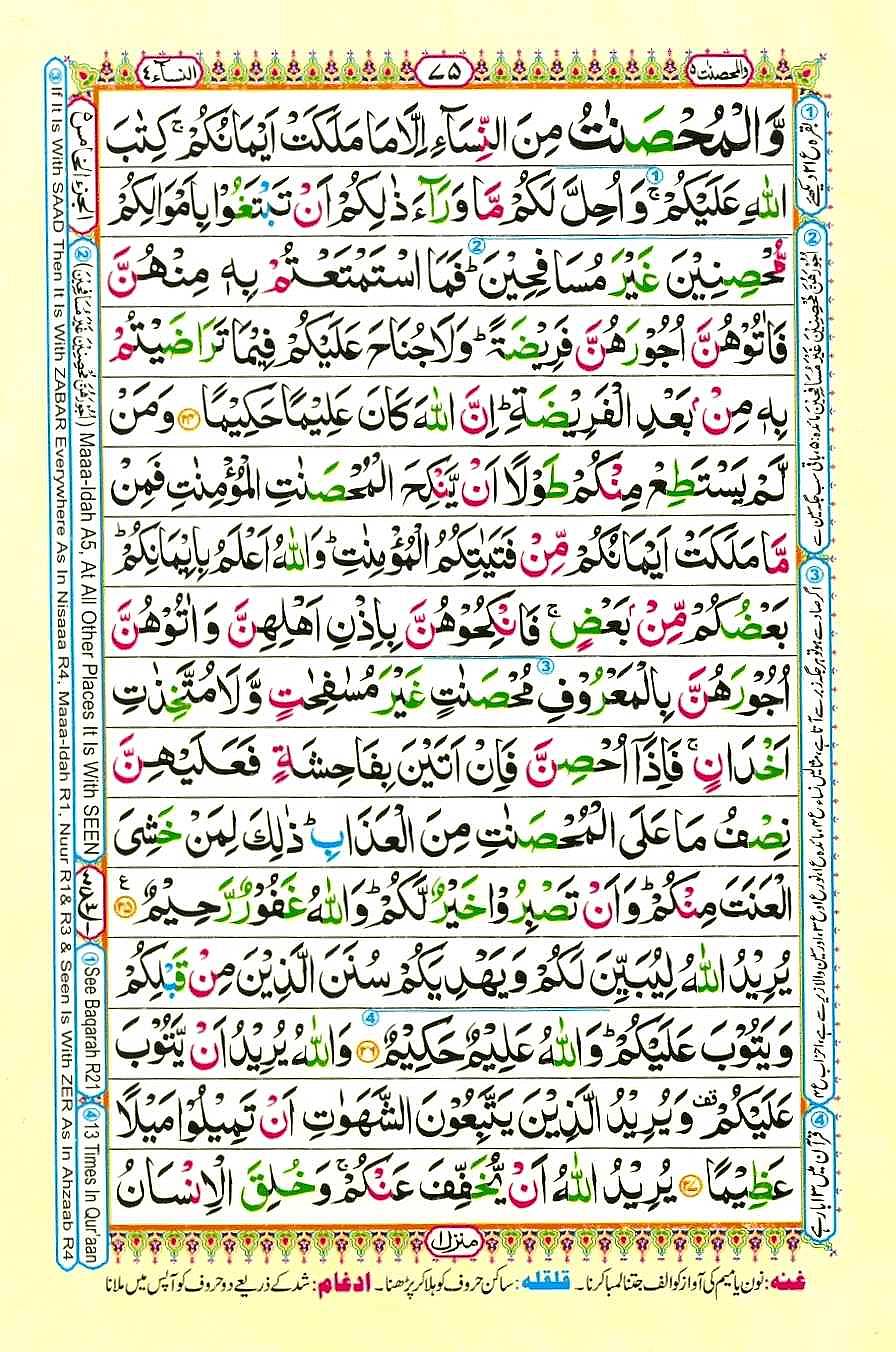 والمحصنٰت ٥
٧٥
النسآء ٤
وَّالْمُحْصَنٰتُ مِنَ النِّسَآءِ اِلَّا مَا مَلَكَتْ اَيْمَانُكُمْ ۚ كِتٰبَ
اللّٰهِ عَلَيْكُمْ ۚ وَاُحِلَّ لَكُمْ مَّا وَرَآءَ ذٰلِكُمْ اَنْ تَبْتَغُوْا بِاَمْوَالِكُمْ
مُّحْصِنِيْنَ غَيْرَ مُسَافِحِيْنَ ؕ فَمَا اسْتَمْتَعْتُمْ بِهٖ مِنْهُنَّ
فَاٰتُوْهُنَّ اُجُوْرَهُنَّ فَرِيْضَةً ؕ وَلَا جُنَاحَ عَلَيْكُمْ فِيْمَا تَرَاضَيْتُمْ
بِهٖ مِنْۢ بَعْدِ الْفَرِيْضَةِ ؕ اِنَّ اللّٰهَ كَانَ عَلِيْمًا حَكِيْمًا ۝٢٤ وَمَنْ
لَّمْ يَسْتَطِعْ مِنْكُمْ طَوْلًا اَنْ يَّنْكِحَ الْمُحْصَنٰتِ الْمُؤْمِنٰتِ فَمِنْ
مَّا مَلَكَتْ اَيْمَانُكُمْ مِّنْ فَتَيٰتِكُمُ الْمُؤْمِنٰتِ ؕ وَاللّٰهُ اَعْلَمُ بِاِيْمَانِكُمْ ؕ
بَعْضُكُمْ مِّنْۢ بَعْضٍ ۚ فَانْكِحُوْهُنَّ بِاِذْنِ اَهْلِهِنَّ وَاٰتُوْهُنَّ
اُجُوْرَهُنَّ بِالْمَعْرُوْفِ مُحْصَنٰتٍ غَيْرَ مُسٰفِحٰتٍ وَّلَا مُتَّخِذٰتِ
اَخْدَانٍ ۚ فَاِذَاۤ اُحْصِنَّ فَاِنْ اَتَيْنَ بِفَاحِشَةٍ فَعَلَيْهِنَّ
نِصْفُ مَا عَلَى الْمُحْصَنٰتِ مِنَ الْعَذَابِ ؕ ذٰلِكَ لِمَنْ خَشِىَ
الْعَنَتَ مِنْكُمْ ؕ وَاَنْ تَصْبِرُوْا خَيْرٌ لَّكُمْ ؕ وَاللّٰهُ غَفُوْرٌ رَّحِيْمٌ ۝٢٥ ع
يُرِيْدُ اللّٰهُ لِيُبَيِّنَ لَكُمْ وَيَهْدِيَكُمْ سُنَنَ الَّذِيْنَ مِنْ قَبْلِكُمْ
وَيَتُوْبَ عَلَيْكُمْ ؕ وَاللّٰهُ عَلِيْمٌ حَكِيْمٌ ۝٢٦ وَاللّٰهُ يُرِيْدُ اَنْ يَّتُوْبَ
عَلَيْكُمْ قف وَيُرِيْدُ الَّذِيْنَ يَتَّبِعُوْنَ الشَّهَوٰتِ اَنْ تَمِيْلُوْا مَيْلًا
عَظِيْمًا ۝٢٧ يُرِيْدُ اللّٰهُ اَنْ يُّخَفِّفَ عَنْكُمْ ۚ وَخُلِقَ الْاِنْسَانُ
منزل ١
غنه: نون یا میم کی آواز کو الف جتنا لمبا کرنا۔ قلقله: ساکن حروف کو ہلا کر پڑھنا۔ ادغام: شد کے ذریعے دو حروف کو آپس میں ملانا
④ قرآن میں ١٣ بار ہے
الجزء الخامس ٥
② (اُجُوْرَهُنَّ مُحْصِنِيْنَ غَيْرَ مُسَافِحِيْنَ) Maaa-Idah A5, At All Other Places It Is With SEEN
③ If It Is With SAAD Then It Is With ZABAR Everywhere As In Nisaaa R4, Maaa-Idah R1, Nuur R1& R3 & Seen Is With ZER As In Ahzaab R4
① See Baqarah R21
④ 13 Times In Qur'aan